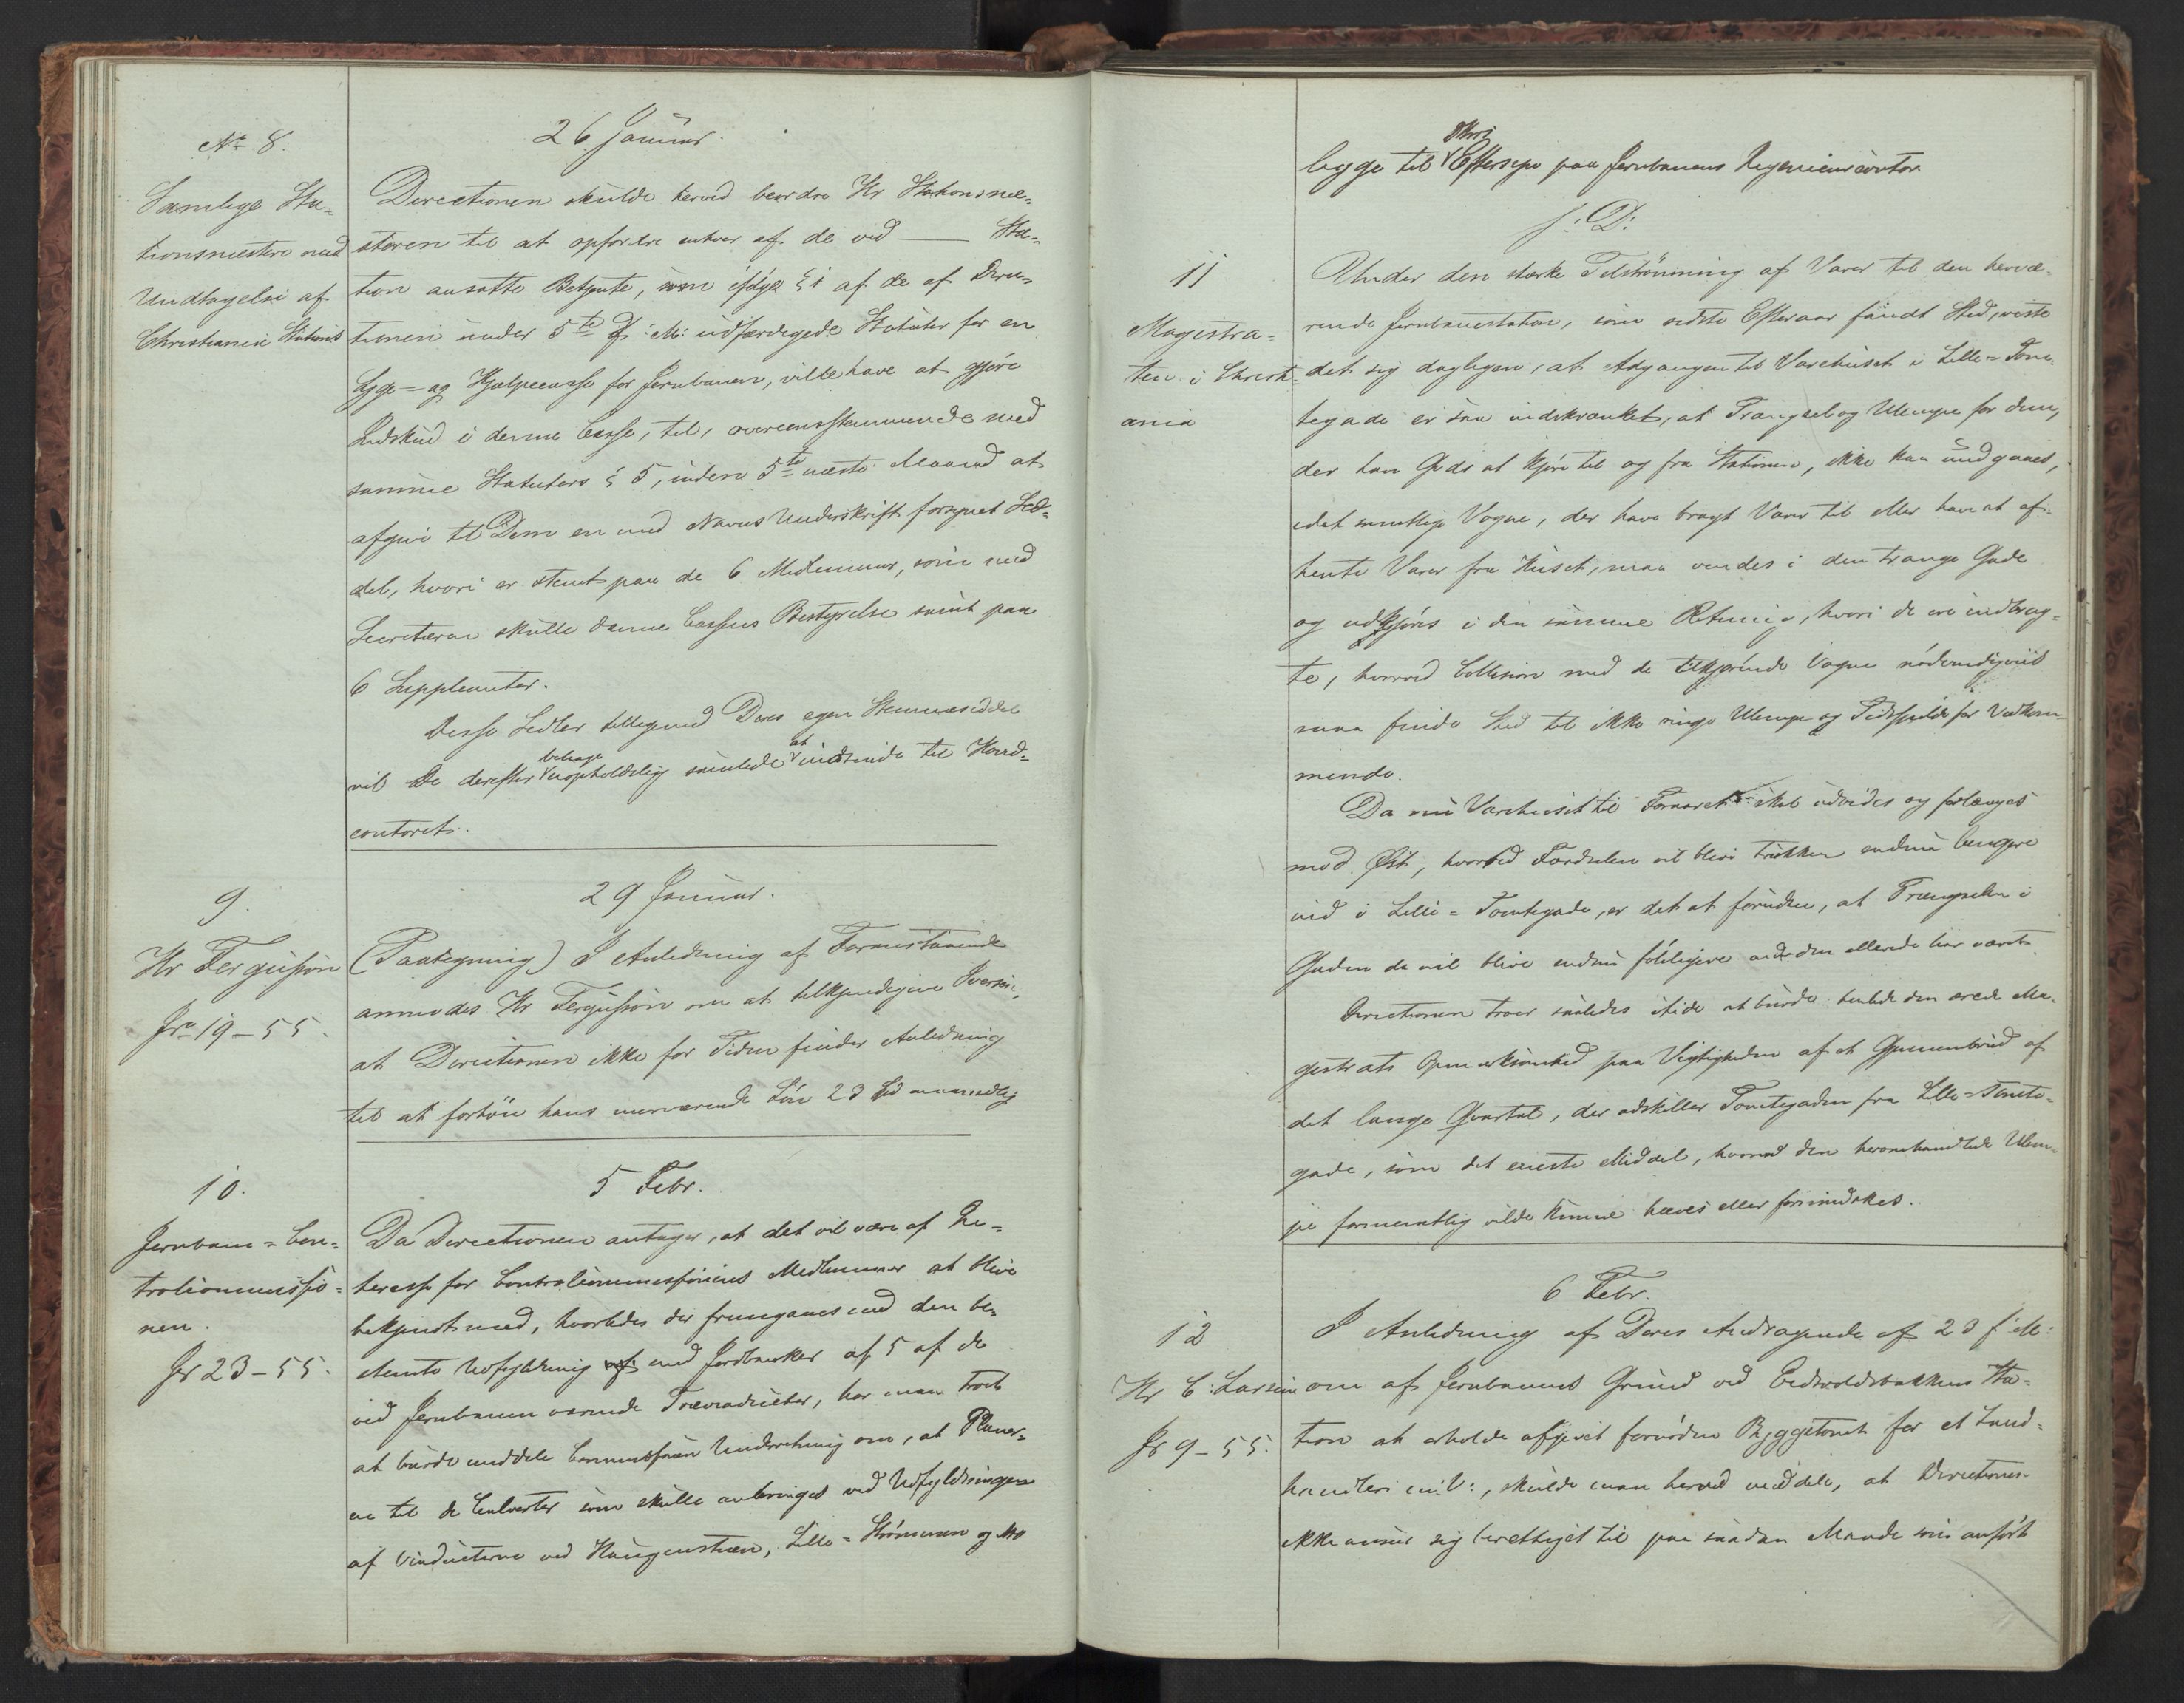 No 8.
26 Januar.
Samlige Sta-
tionsmestere med
Undtagelse af
Christiania Stations
Directionen skulde herved beordre Hr Stationsme-
steren til at opfordre enhver af de ved — Sta-
tion ansatte Betjente, som ifølge § 1 af de af Direc-
tionen under 5te d: M: udfærdigede Statuter for en
Syge- og Hjælpecasse for Jernbanen, ville have at gjøre
Indskud i denne Casse, til, overeensstemmende med
samme Statuters § 5, inden 5te næste Maaned at
afgive til Dem en med Navns Underskrift forsynet Sed-
del, hvori er stemt paa de 6 Medlemmer, som med
Secretæren skulle danne Cassens Bestyrelse samt paa
6 Suppleanter.
Disse Sedler tilligemed Deres egen Stemmeseddel
vil De derefter behage uopholdelig samlede at indsende til Hoved-
contoret.
9.
29 Januar.
Hr Fergusson
Jr 19-55.
(Paategning) I Anledning af Foranstaaende
anmodes Hr Fergusson om at tilkjendegive Iversen,
at Directionen ikke for Tiden finder Anledning
til at forhøie hans nuværende Løn 23 Spd maanedlig
10.
5 Febr.
Jernbane-Cen-
tralcommissio-
nen.
Jr 23-55.
Da Directionen antager, at det vil være af In-
teresse for Centralcommissionens Medlemmer at blive
bekjendt med, hvorledes der fremgaaes med den be-
stemte Udfyldning af med Jordbanker af 5 af de
ved Jernbanen værende Træviaducter, har man troet
at burde meddele Commissionen Underretning om, at Planer-
ne til de Culverter som skulle anbringes ved Udfyldningen
af Viaducterne ved Haugenstuen, Lille-Strømmen og
ligge til Eftersyn paa Jernbanens Ingenieurcontor
s: D:
11
Magistra-
ten i Christi-
ania
Under den stærke Tilstrømning af Varer til den herværende
rende Jernbanestation, som sidste Efteraar fandt Sted, viste
det sig dagligen, at Adgangen til Varehuset i Lille-Tom-
tegade er saa indskrænket, at Trængsel og Ulempe for dem,
der have Gods at kjøre til og fra Stationen, ikke kan undgaaes,
idet samtlige Vogne, der have bragt Varer til eller have at af-
hente Varer fra Huset, maa vendes i den trange Gade
og udkjøres i den samme Retning, hvori de ere indbrag-
te, hvorved Collision med de tilkjørende Vogne nødvendigviis
maa finde Sted til ikke ringe Ulempe og Tidsspilde for Vedkom-
mende.
Da nu Varehuset til Foraaret skal udvides og forlænges
mod Øst, hvorved Færdselen vil blive trukken endnu længere
ind i Lille-Tomtegade, er det at forudsee, at Trængselen i
Gaden da vil blive endnu føleligere end den allerede har været.
Directionen troer saaledes itide at burde henlede den ærede Ma-
gistrats Opmærksomhed paa Vigtigheden af et Gjennembrud af
det lange Qvartal, der adskiller Tomtegaden fra Lille-Tomte-
gade, som det eneste Middel, hvorved den heromhandlede Ulem-
pe formeentlig vilde kunne hæves eller formindskes.
6 Febr.
12
Hr C: Larsen
Jr 9-55.
I Anledning af Deres Andragende af 23 f: M:
om af Jernbanens Grund ved Eidsvoldsbakkens Sta-
tion at erholde afgivet fornøden Byggetomt for et Land-
handleri m: V:, skulde man herved meddele, at Directionen
ikke anseer sig berettiget til paa saadan Maade som anført